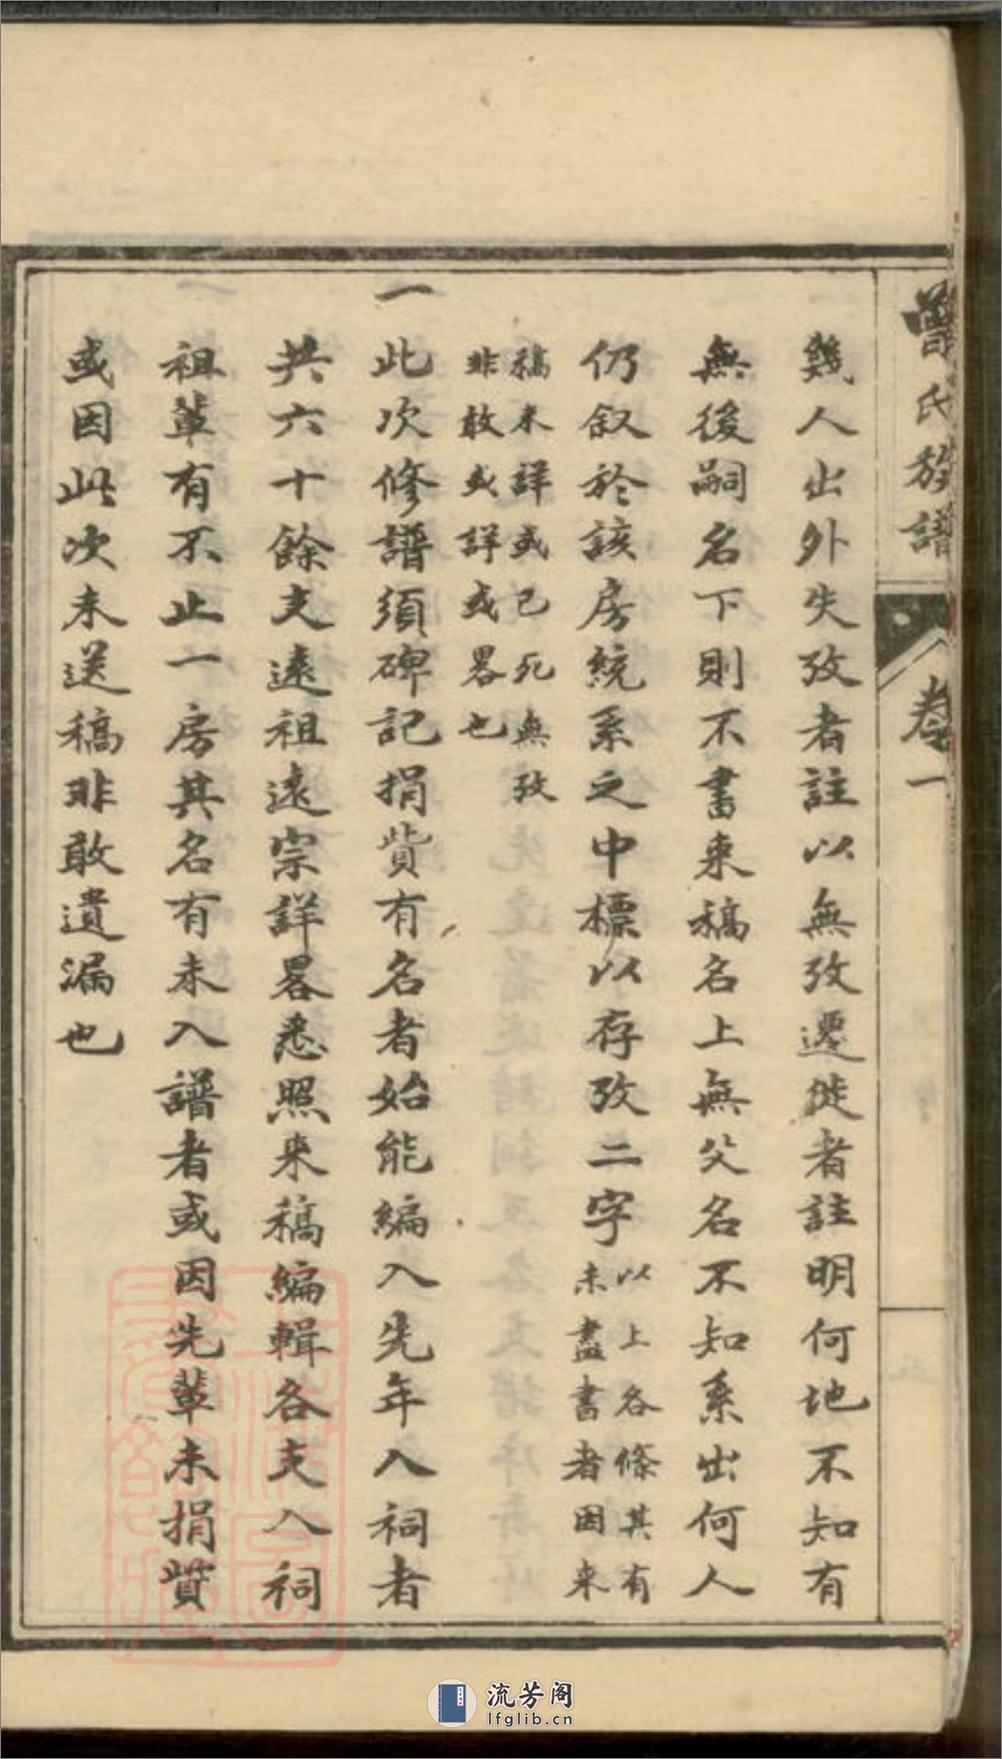 曾氏族譜
卷一
幾人出外失攷者註以無攷遷徙者註明何地不知有
無後嗣名下則不書来稿名上無父名不知系出何人
仍叙於該房統系之中標以存攷二字以上各條其有未盡書者因来
稿未詳或已死無攷非敢或詳或畧也
一此次修譜須碑記捐貲有名者始能編入先年入祠者
共六十餘支遠祖遠宗詳畧悉照来稿編輯各支入祠
祖輩有不止一房其名有未入譜者或因先輩未捐貲
或因此次未送稿非敢遺漏也
流芳阁
lfglib.cn